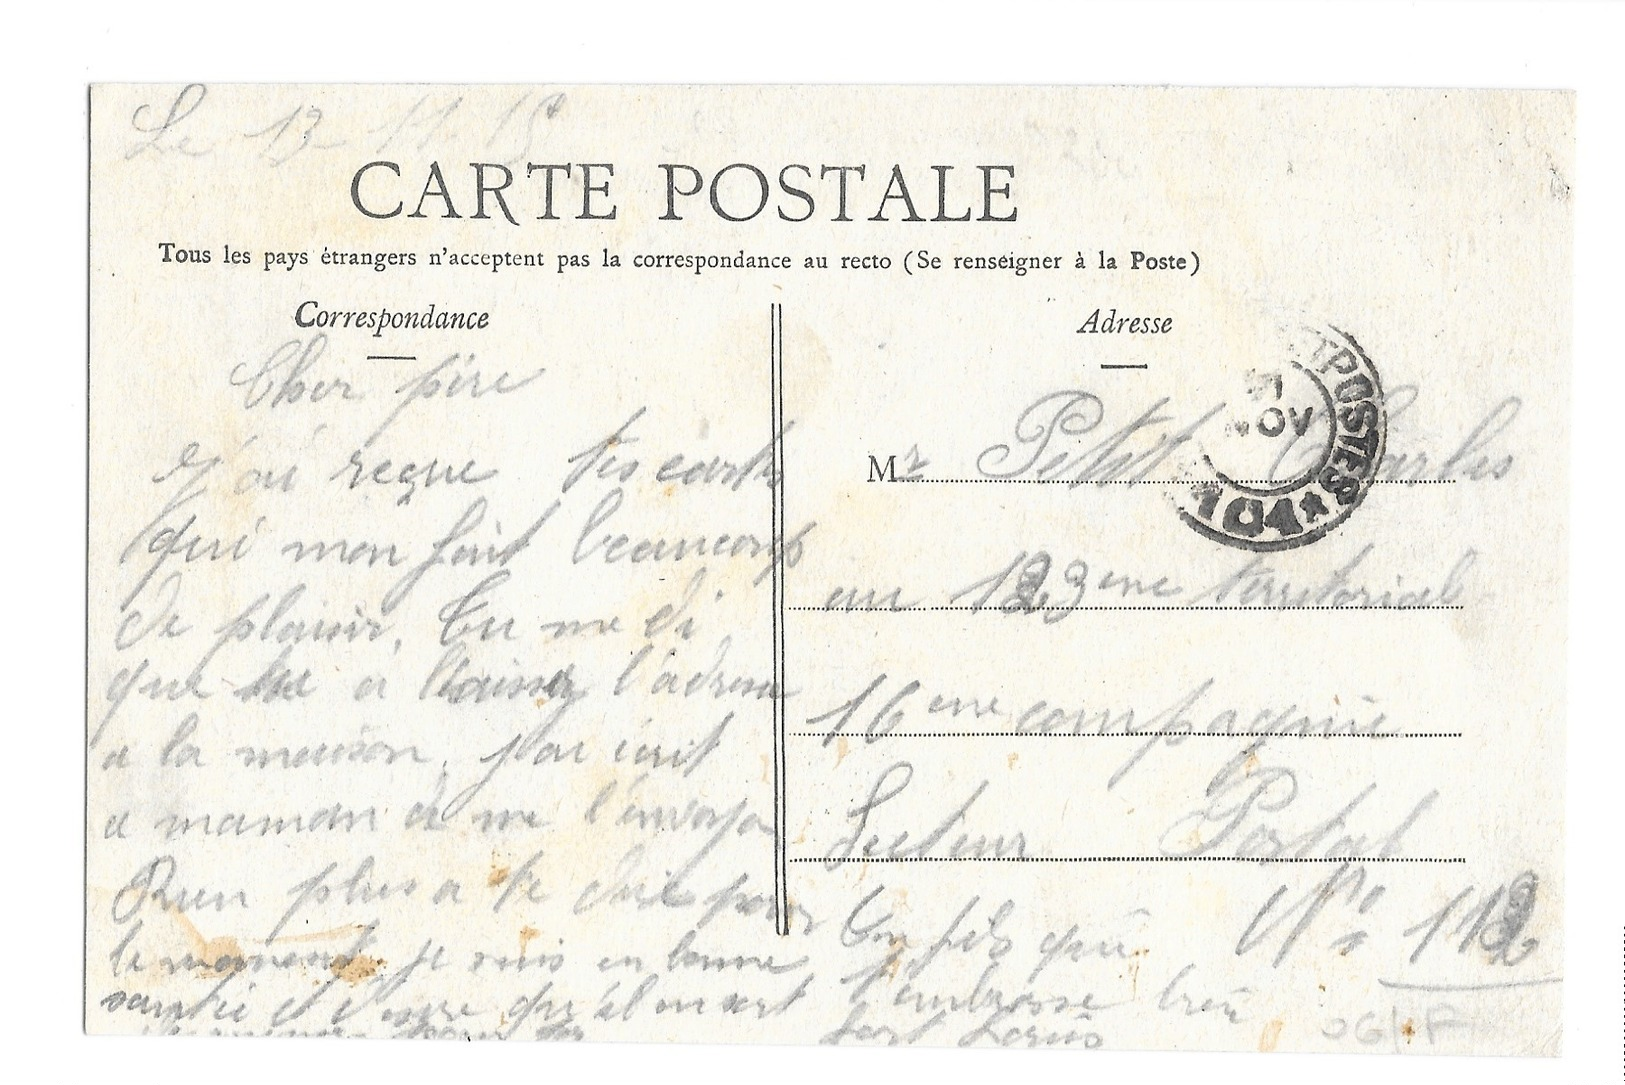 Le 13-11-15
CARTE POSTALE
Tous les pays étrangers n'acceptent pas la correspondance au recto (Se renseigner à la Poste)
Correspondance
Cher père
j'ai reçue tes cartes
qui mon fait beaucoup
de plaisir. Tu me di
que tu a laisser l'adresse
a la maison, j'ai écrit
a maman de me l'envoyer
Rien plus a te dire pour
le moment, je suis en bonne
santée et j'espère qu'il en est
pour toi
Adresse
Mr Petit Charles
au 123eme territorial
16eme compagnie
Secteur Postal
No 112
Ton fils qui
t'embrasse bien
fort Louis
POSTES
NOV
104*